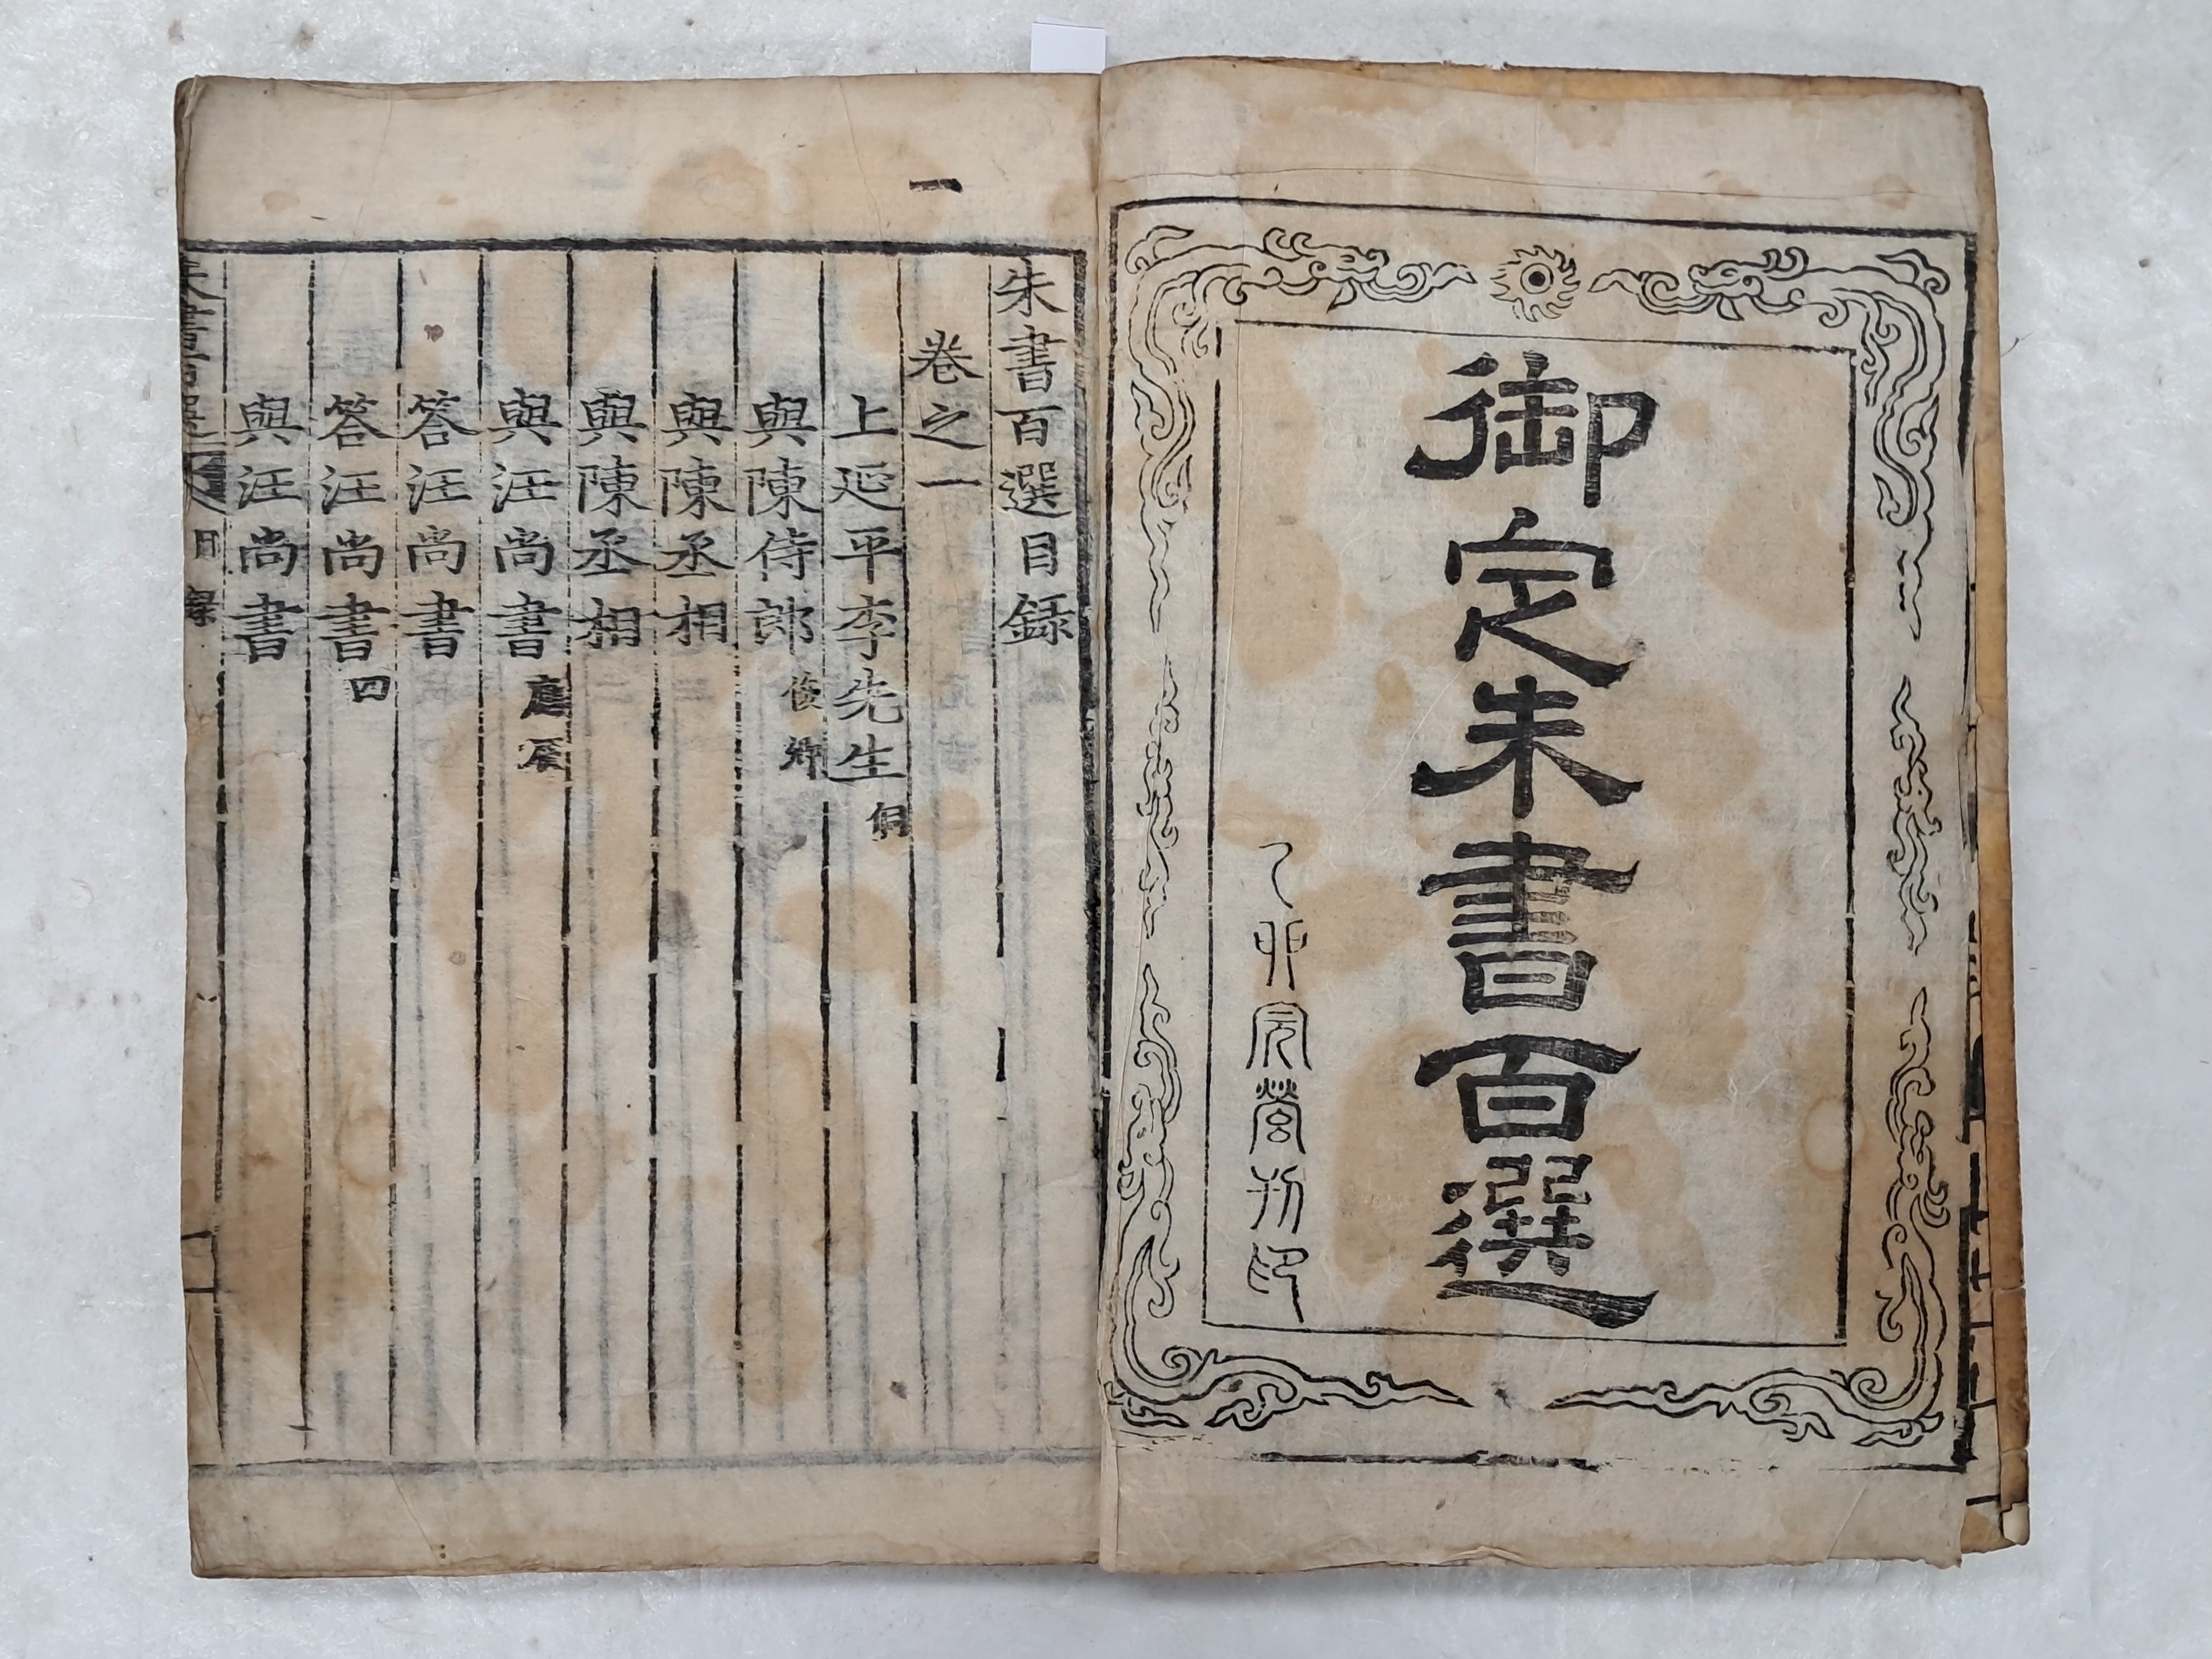 御定朱書百選
乙卯完營刊印
一
朱書百選目録
卷之一
上延平李先生侗
與陳侍郎俊卿
與陳丞相
與陳丞相
與汪尚書應辰
答汪尚書
答汪尚書四
與汪尚書
朱書百選 目録